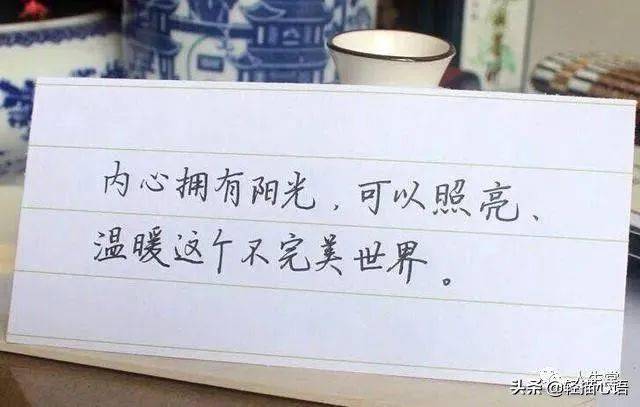 内心拥有阳光,可以照亮、
温暖这个不完美世界。
头条 @轻描心语